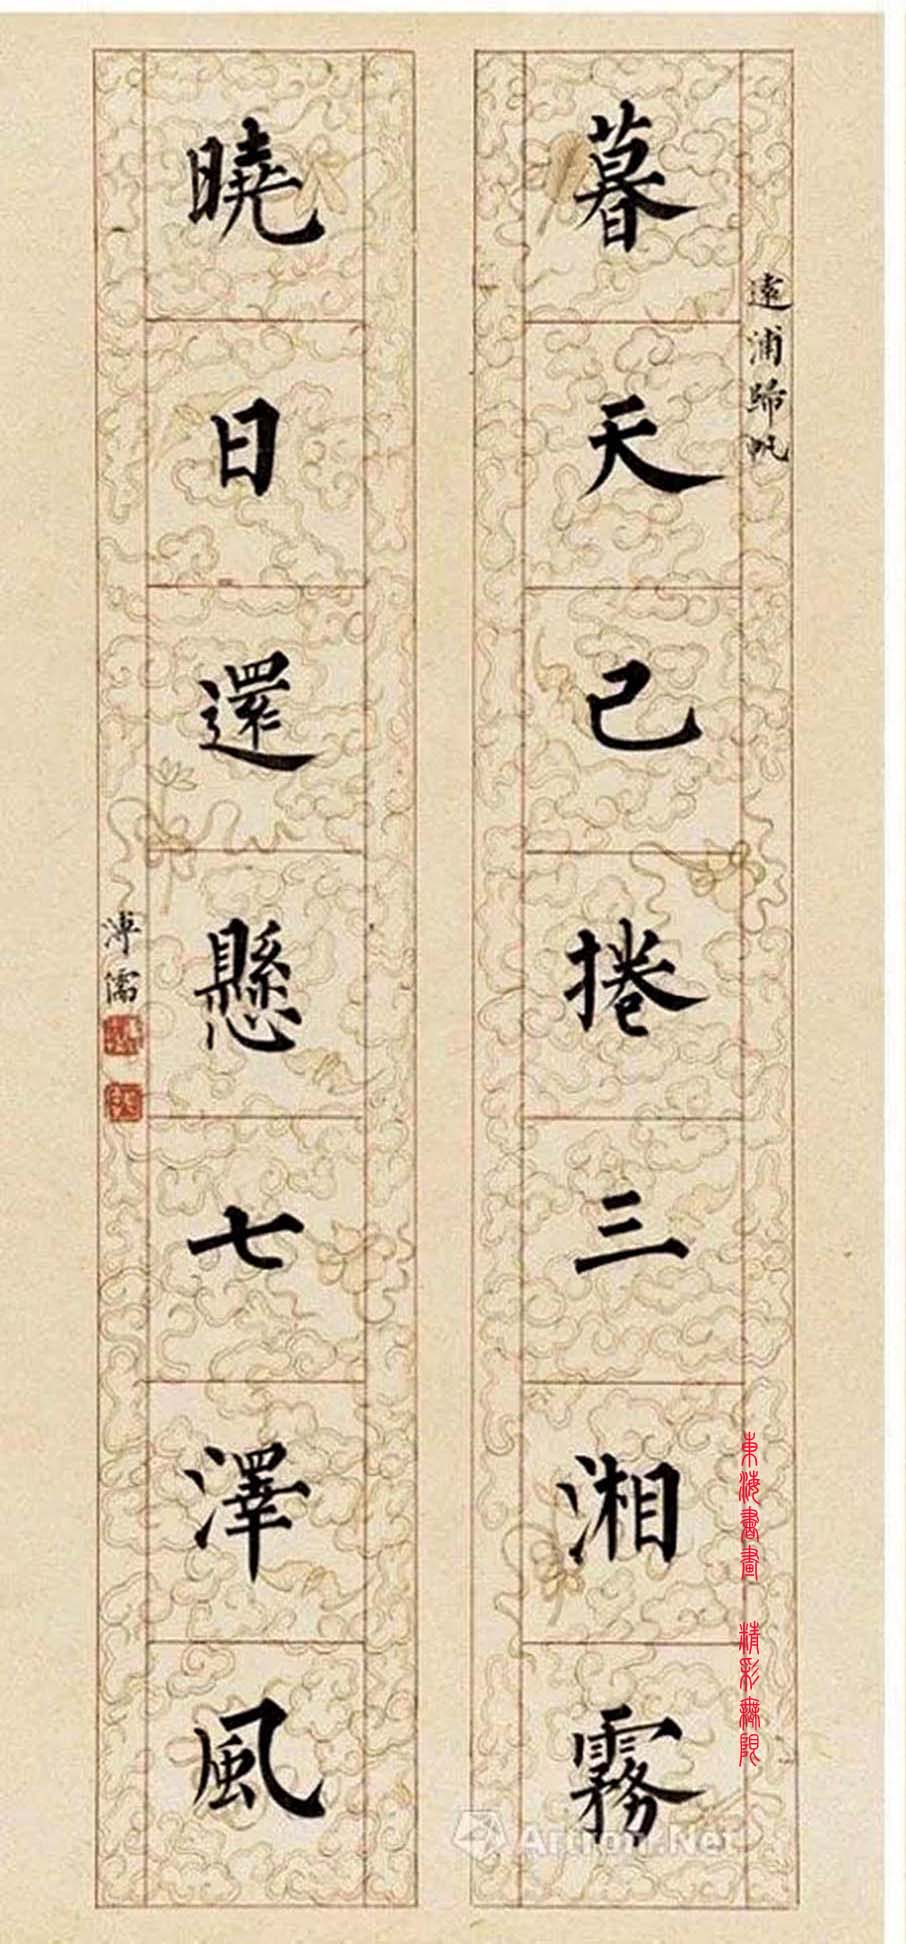 遠浦歸帆
暮天已捲三湘霧
曉日還懸七澤風
溥儒
東海書畫 精彩無限
Artron.Net